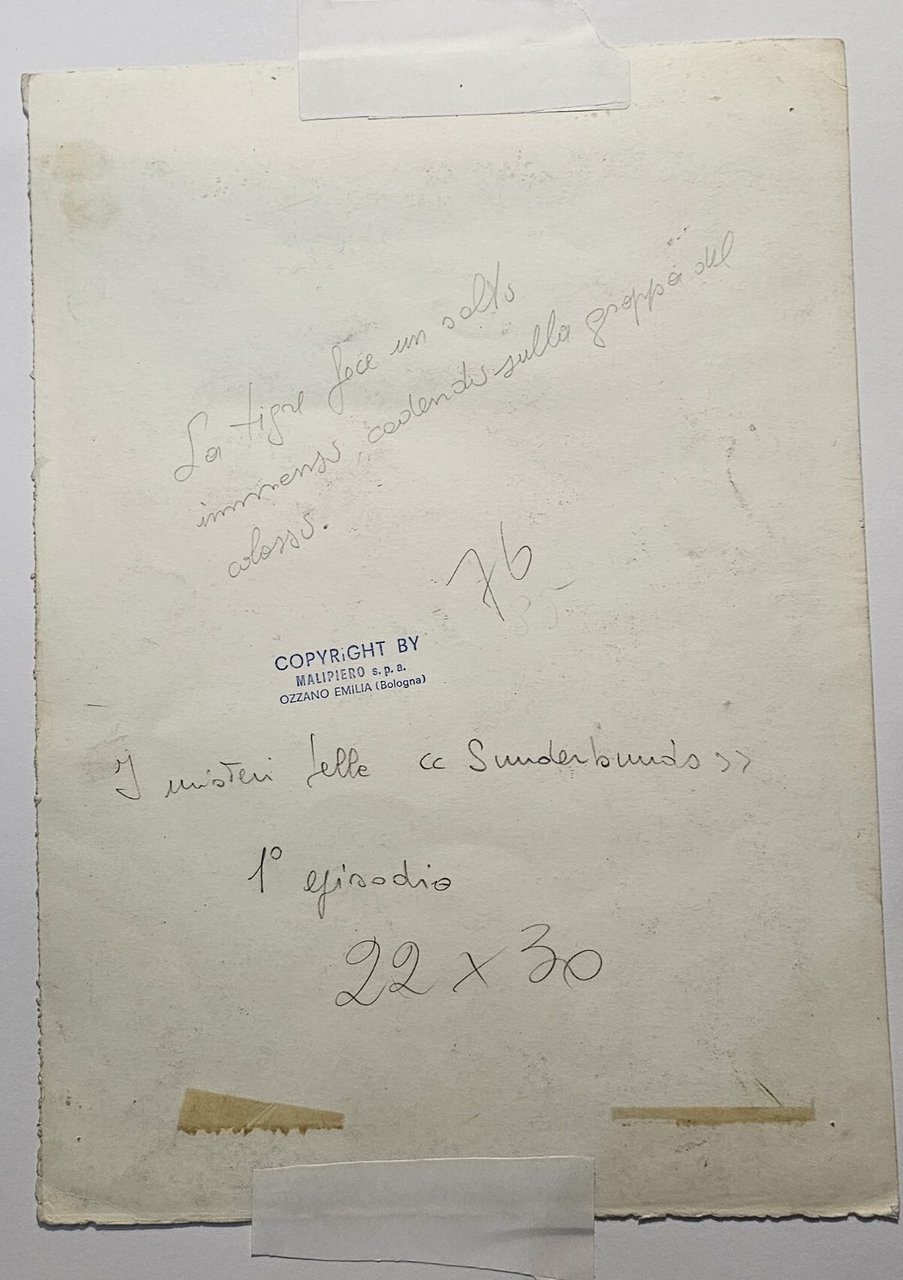 La tigre fece un salto
immenso, cadendo sulla groppa del
colosso.
76
35
COPYRiGHT BY
MALIPIERO s. p. a.
OZZANO EMILIA (Bologna)
I misteri delle « Sunderbunds »
1° episodio
22 x 30